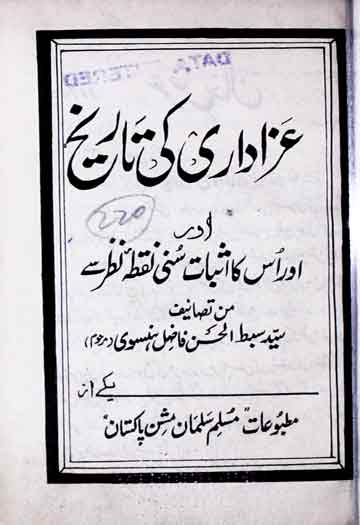 DATA ENTERED
عزاداری کی تاریخ
220
اور
اور اُس کا اثبات سُنی نقطۂ نظر سے
من تصانیف
سیّد سبط الحسن فاضل ہنسوی (مرحوم)
یکے از
مطبوعات "مسلم سلمان مشن پاکستان"